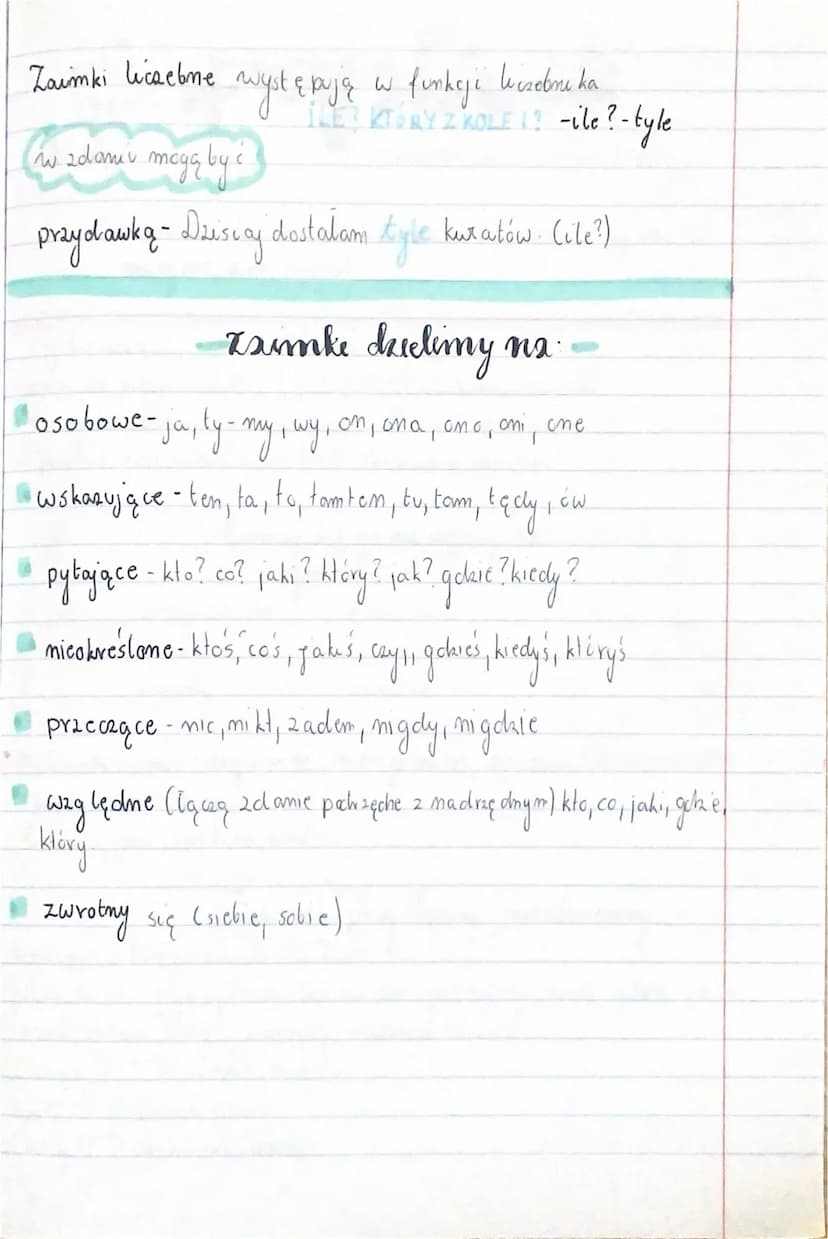 Zaimki liczebne występują w funkcji liczebnika
ILE? KTÓRY Z KOLEI? -ile?-tyle
w zdaniu mogą być
przydawką - Dzisiaj dostałam tyle kwiatów. (ile?)
Zaimki dzielimy na:
osobowe - ja, ty - my, wy, on, ona, ono, oni, one
wskazujące - ten, ta, to, tamten, tu, tam, tędy, ów
pytające - kto? co? jaki? który? jak? gdzie? kiedy?
nieokreślone - ktoś, coś, jakiś, czyjś, gdzieś, kiedyś, któryś
przeczące - nic, nikt, żaden, nigdy, nigdzie
względne (łączą zdanie podrzędne z nadrzędnym) kto, co, jaki, gdzie,
który
zwrotny się (siebie, sobie)